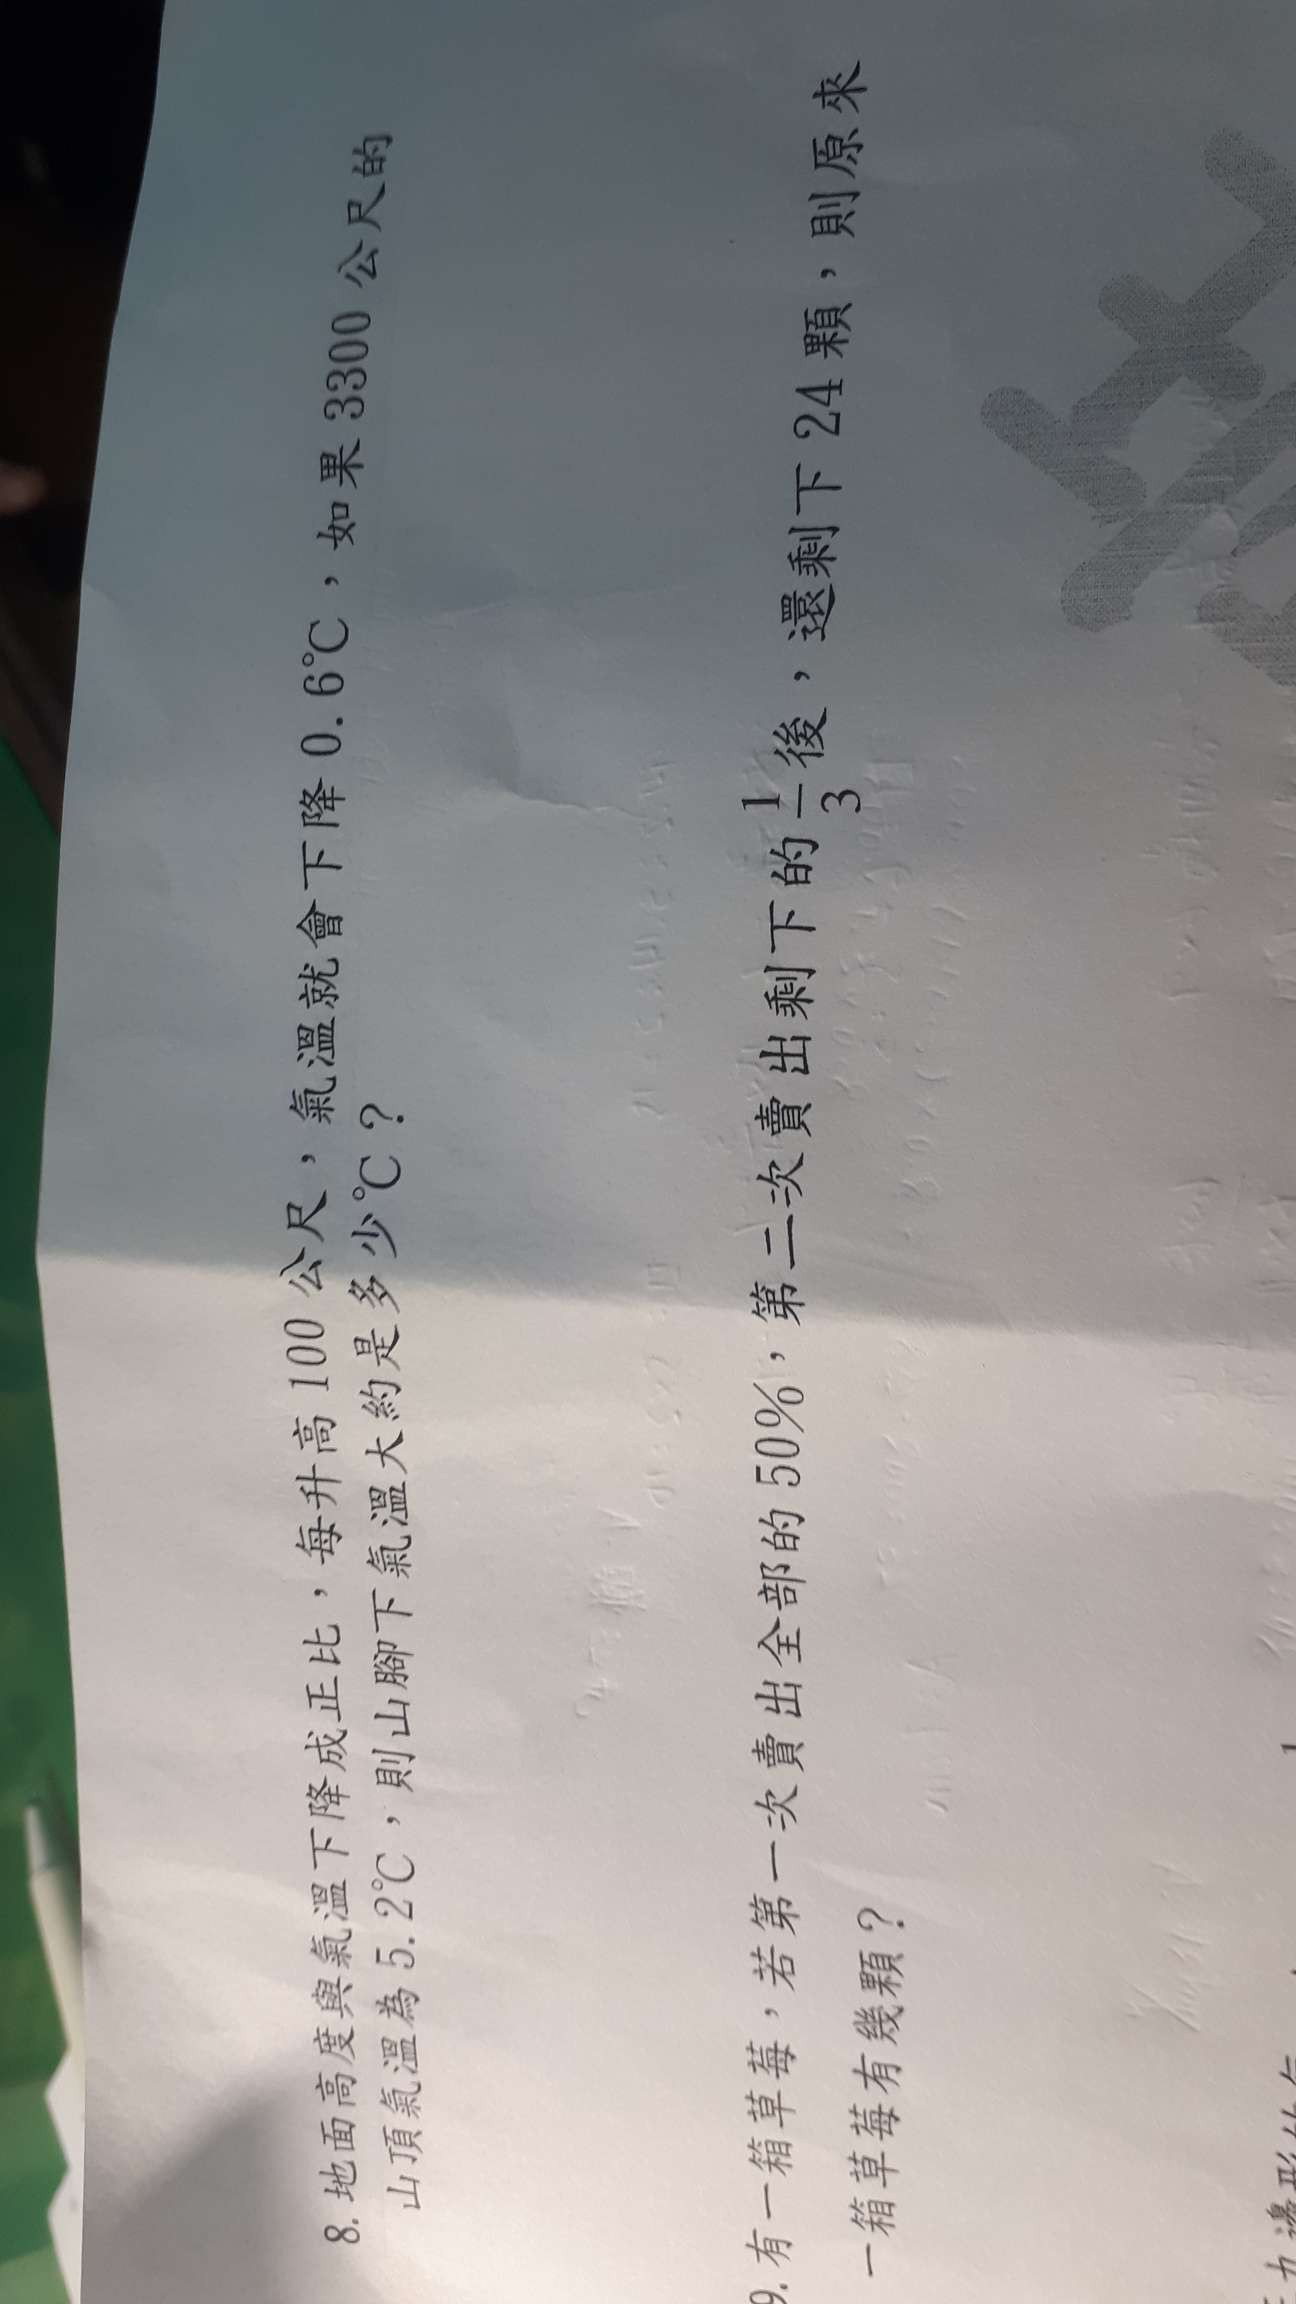 8. 地面高度與氣溫下降成正比，每升高100公尺，氣溫就會下降0.6℃，如果3300公尺的
山頂氣溫為5.2℃，則山腳下氣溫大約是多少℃？
9. 有一箱草莓，若第一次賣出全部的50%，第二次賣出剩下的1/3後，還剩下24顆，則原來
一箱草莓有幾顆？